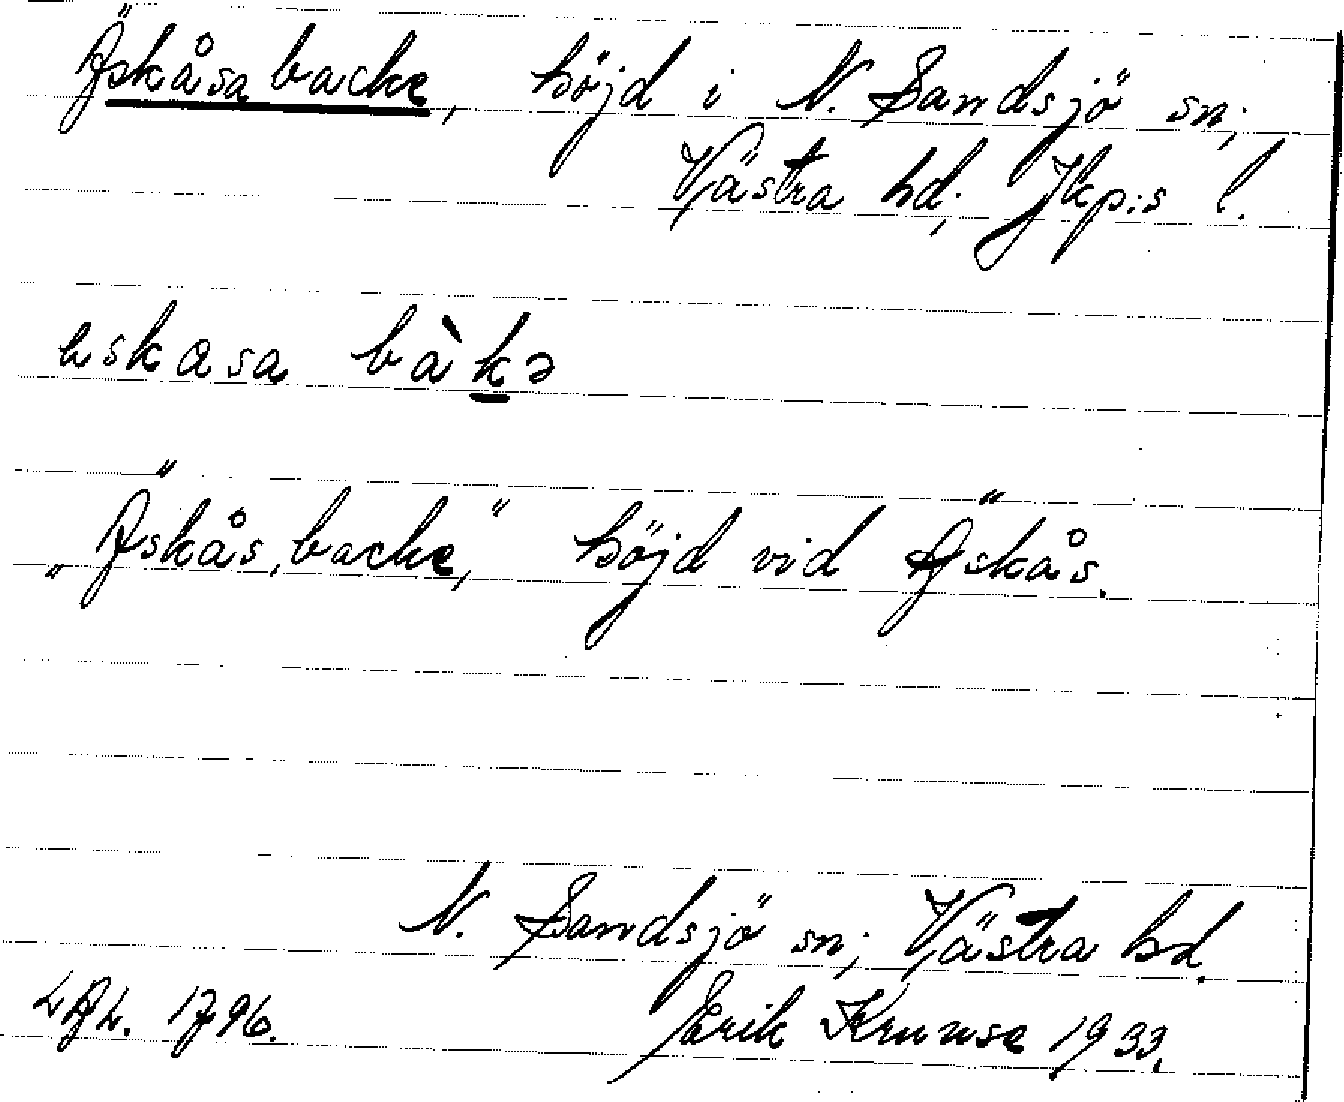 Äskåsabacke, höjd i N. Sandsjö sn;
Västra hd; Jkp:s l.
æskasa bàkə
"Äskås, backe," höjd vid Äskås.
N. Sandsjö sn; Västra hd.
1796. Erik Kruuse 1933.